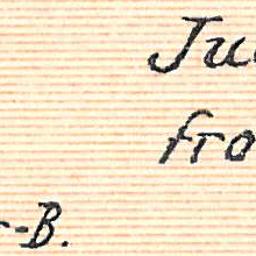 Ju
fro
-B.